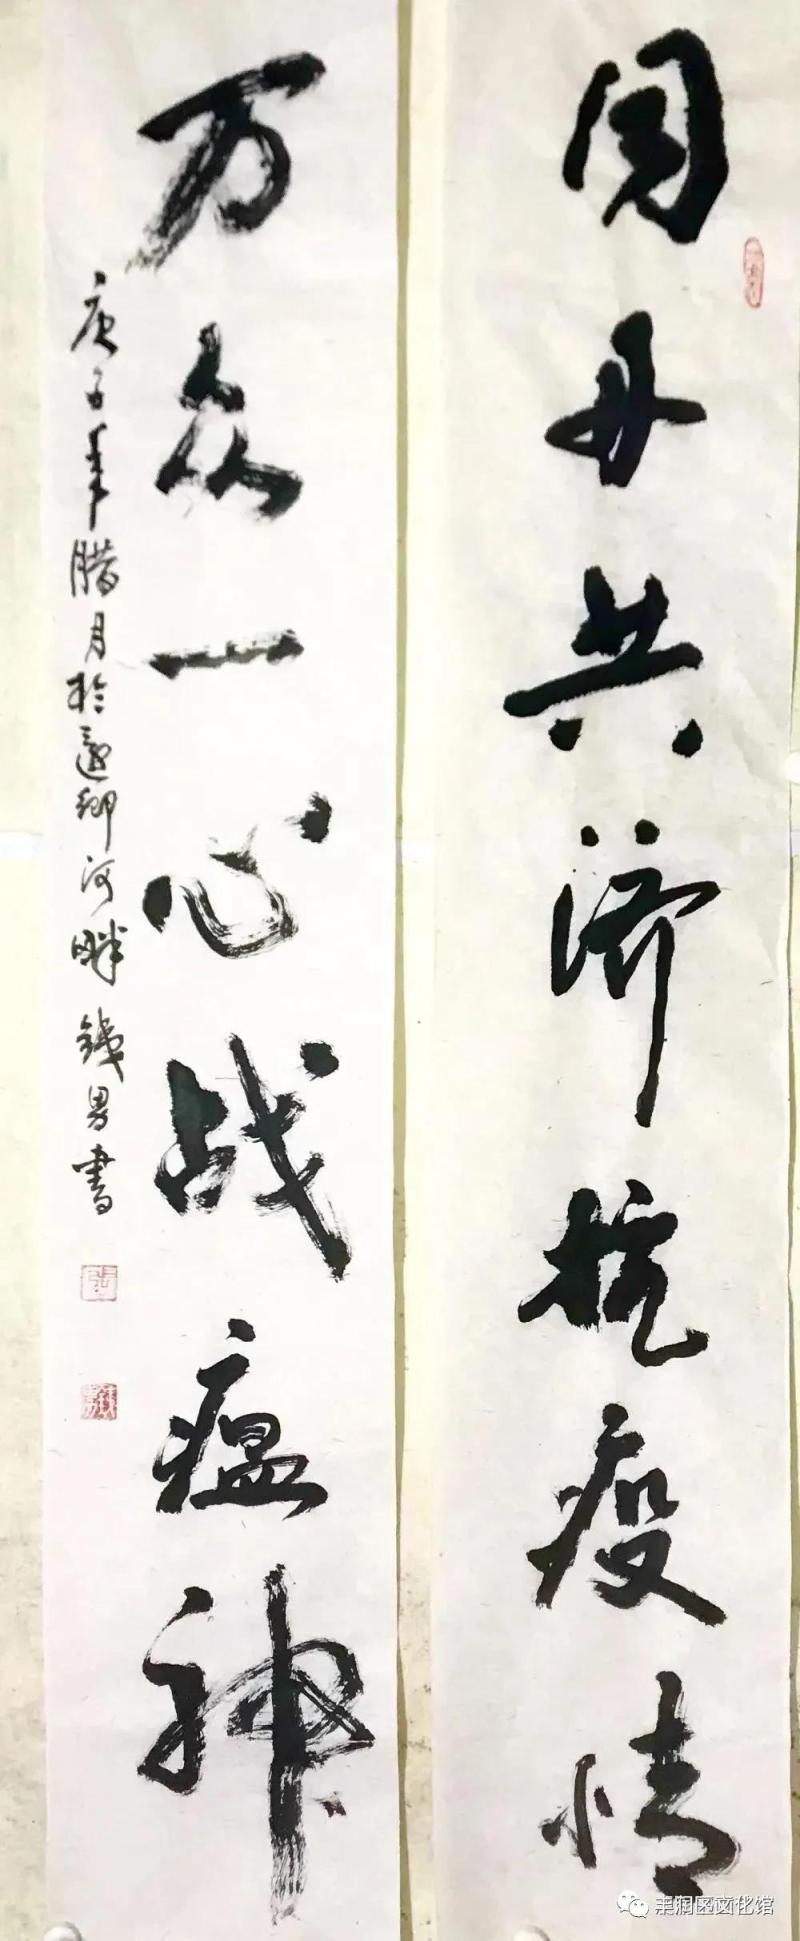 同舟共济抗疫情
万众一心战瘟神
庚子年腊月於还乡河畔 铁男书
丰润区文化馆